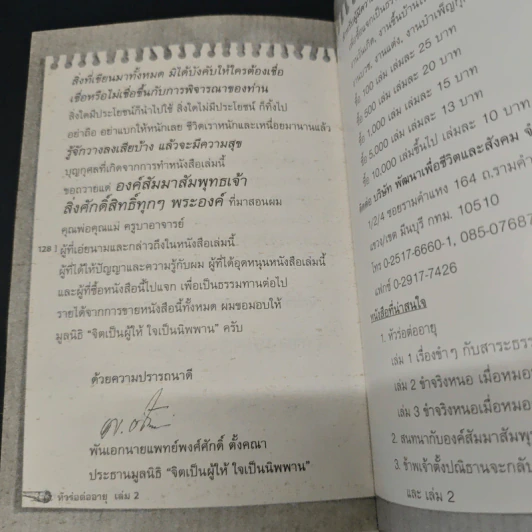 สิ่งที่เขียนมาทั้งหมด มิได้บังคับให้ใครต้องเชื่อ
เชื่อหรือไม่เชื่อขึ้นกับการพิจารณาของท่าน
สิ่งใดมีประโยชน์ก็นำไปใช้ สิ่งใดไม่มีประโยชน์ ก็ทิ้งไป
อย่าถือ อย่าแบกให้หนักเลย ชีวิตเราหนักและเหนื่อยมานานแล้ว
รู้จักวางลงเสียบ้าง แล้วจะมีความสุข
บุญกุศลที่เกิดจากการทำหนังสือเล่มนี้
ขอถวายแด่ องค์สัมมาสัมพุทธเจ้า
สิ่งศักดิ์สิทธิ์ทุกๆ พระองค์ ที่มาสอนผม
คุณพ่อคุณแม่ ครูบาอาจารย์
128 ผู้ที่เอ่ยนามและกล่าวถึงในหนังสือเล่มนี้
ผู้ที่ให้ปัญญาและความรู้กับผม ผู้ที่อุดหนุนหนังสือเล่มนี้
และผู้ที่ซื้อหนังสือนี้ไปแจก เพื่อเป็นธรรมทานต่อไป
รายได้จากการขายหนังสือนี้ทั้งหมด ผมขอมอบให้
มูลนิธิ "จิตเป็นผู้ให้ ใจเป็นนิพพาน" ครับ
ด้วยความปรารถนาดี
พันเอกนายแพทย์พงศ์ศักดิ์ ตั้งคณา
ประธานมูลนิธิ "จิตเป็นผู้ให้ ใจเป็นนิพพาน"
ทัวร์อต่ออายุ เล่ม 2
งานบวช, งานแต่ง, งานบำเพ็ญกุ
ซื้อ 100 เล่ม เล่มละ 25 บาท
ซื้อ 500 เล่ม เล่มละ 20 บาท
ซื้อ 1,000 เล่ม เล่มละ 15 บาท
ซื้อ 5,000 เล่ม เล่มละ 13 บาท
ซื้อ 10,000 เล่มขึ้นไป เล่มละ 10 บาท
ติดต่อ บริษัท พัฒนาเพื่อชีวิตและสังคม จ
1/2/4 ซอยรามคำแหง 164 ถ.รามคำ
แขวง/เขต มีนบุรี กทม. 10510
โทร 0-2517-6660-1, 085-07687
แฟกซ์ 0-2917-7426
หนังสือที่น่าสนใจ
1. ทัวร์อต่ออายุ
เล่ม 1 เรื่องขำๆ กับสาระธรร
เล่ม 2 ขำจริงหนอ เมื่อหมอ
เล่ม 3 ขำจริงหนอเมื่อหมอ
2. สนทนากับองค์สัมมาสัมพุ
3. ข้าพเจ้าตั้งปณิธานจะกลับ
และ เล่ม 2